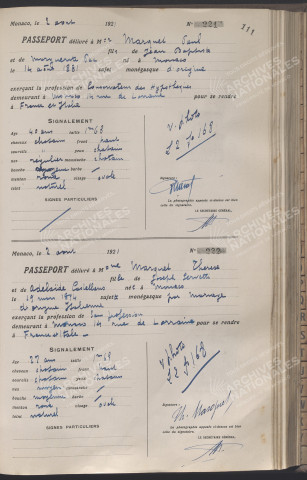 Monaco, le 2 août 192
N°
PASSEPORT délivré à Mr Marquet Paul
fils de Jean Baptiste
et de Marguerite né à Monaco
le 14 août 1881 sujet monégasque d'origine
exerçant la profession de Conservateur des Hypothèques
demeurant à Monaco 14 rue de Lorraine pour se rendre
à France et Italie
SIGNALEMENT
Age 40 ans taille 1m68
cheveux chatain front haut
sourcils yeux chatain
nez régulier moustache chatain
bouche moyenne barbe
menton rond visage ovale
teint naturel
SIGNES PARTICULIERS
v. photo
L 2 f° 168
Signature :
La photographie apposée ci-dessus est bien
celle du signataire.
LE SECRÉTAIRE GÉNÉRAL,
Monaco, le 2 août 192
N°
PASSEPORT délivré à Mme Marquet Thérèse
fille de Joseph
et de Adélaïde née à Monaco
le 19 mars 1894 sujette monégasque par mariage
d'origine italienne
exerçant la profession de sans profession
demeurant à Monaco 14 rue de Lorraine pour se rendre
à France et Italie
SIGNALEMENT
Age 27 ans taille 1m58
cheveux chatain front haut
sourcils chatain yeux chatain
nez moyen moustache
bouche moyenne barbe
menton rond visage ovale
teint naturel
SIGNES PARTICULIERS
v photo
L 2 f° 168
Signature :
Th. Marquet
La photographie apposée ci-dessus est bien
celle du signataire.
LE SECRÉTAIRE GÉNÉRAL,
ARCHIVES
NATIONALES